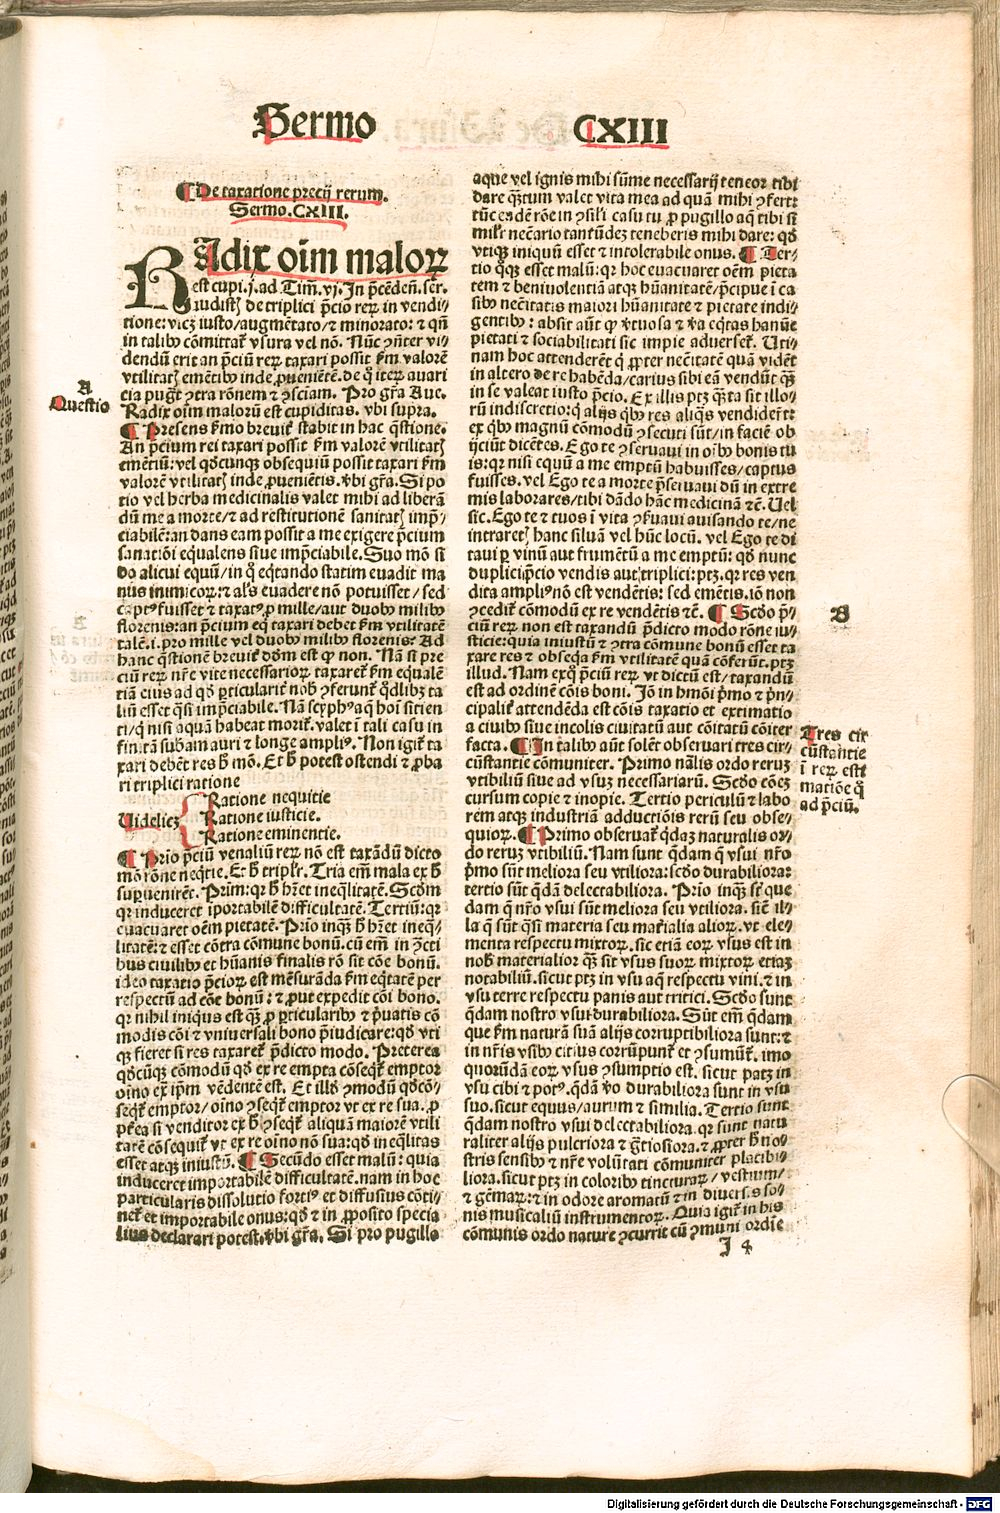 Sermo CXIII
¶ De taxatione precij rerum.
Sermo.CXIII.
RAdix oīm maloꝝ
est cupi.j.ad Tim̄.vj. In p̄cedeñ.ser.
audistꝭ de triplici p̄cio reꝝ in vendi⸗
tione: vicꝫ iusto/augmētato/⁊ minorato: ⁊ qn̄
in talibꝰ cōmittat̉ vsura vel nō. Nūc ꝯn̄ter vi⸗
dendū erit an p̄ciū reꝝ taxari possit ẜm valorē
vtilitatꝭ emētibꝰ inde ꝓueniētē. de q̊ iteꝝ auari
cia pugt̉ ꝯtra rōnem ⁊ ꝯsciam. Pro gr̄a Aue.
Radix oīm malorū est cupiditas. vbi supra.
¶ Presens ẜmo breuit̉ stabit in hac q̄stione.
An p̄cium rei taxari possit ẜm valorē vtilitatꝭ
emētiū: vel qd̓cunqꝫ obsequiū possit taxari ẜm
valorē vtilitatꝭ inde ꝓueniētis. vbi gr̄a. Si po
tio vel herba medicinalis valet mihi ad liberā
dū me a morte/⁊ ad restitutionē sanitatꝭ imp̄⸗
ciabilē: an dans eam possit a me exigere p̄cium
sanatiōi equalens siue imp̄ciabile. Suo mō si
do alicui equū/in q̊ eq̇tando statim euadit ma
nus inimicoꝝ: ⁊ al̓s euadere nō potuisset/ sed
captꝰ fuisset ⁊ taxatꝰ ꝓ mille/aut duobꝰ milibꝰ
florenis: an p̄cium eq̇ taxari debet ẜm vtilitatē
talē.i. pro mille vel duobꝰ milibꝰ florenis: Ad
hanc q̄stionem breuit̉ d̓dm̄ est ꝙ non. Nā si pre
ciū reꝝ nr̄e vite necessarioꝝ taxaret̉ ẜm equalē
tiā eius ad qd̓ ꝑticularit̉ nob̓ ꝯferunt̉ qd̓libꝫ ta
liū esset q̄si imp̄ciabile. Nā scyphꝰ aq̄ hoī sitien
ti/q̇ nisi aquā habeat morit̉. valet ī tali casu in
finitā sub̄am auri ⁊ longe ampliꝰ. Non igit̉ ta
xari debēt res h̄ mō. Et h̄ potest ostendi ⁊ ꝓba
ri triplici ratione
Uidelicꝫ
Ratione nequitie
Ratione iusticie.
Ratione eminentie.
¶ Prīo p̄ciū venaliū reꝝ nō est taxādū dicto
mō rōne neq̇tie. Et h̄ tripl̓r. Tria em̄ mala ex h̄
suꝑuenirēt. Prim: qr h̄ hr̄et ineq̄litatē. Scd̓m
qr induceret īportabilē difficultatē. Tertiū: qr
euacuaret oēm pietatē. Prīo inqꝫ h̄ hr̄et ineq̄⸗
litatē: ⁊ esset cōtra cōmune bonū. cū em̄ in ꝯcti
bus ciuilibꝰ et hūanis finalis rō sit cōe bonū.
ideo taxatio p̄cioꝝ est mēsurāda ẜm eq̄tatē per
respectū ad cōe bonū: ⁊ ꝓut expedit cōi bono.
qr nihil iniquꝰ est qꝫ ꝓ ꝑticularibꝰ ⁊ p̄uatis cō
modis cōi ⁊ vniuersali bono p̄iudicare: qd̓ vti
qꝫ fieret si res taxaret̉ p̄dicto modo. Preterea
qd̓cūqꝫ cōmodū qd̓ ex re empta cōseqt̉ emptor
oīno ex ip̄m vēdentē est. Et illd̓ ꝯmodū qd̓ cō⸗
seqt̉ emptor/ oīno ꝯseqt̉ emptor vt ex re sua. ꝓ
pt̓ea si venditor ex h̄ ꝯseqt̉ aliquā maiorē vtili
tatē cōsequit̉ vt ex re oīno nō sua: qd̓ ineq̄litas
esset atqꝫ iniustū. ¶ Secūdo esset malū: quia
induceret importabilē difficultatē. nam in hoc
particularis dissolutio fortiꝰ et diffusius cōti⸗
net̉ et importabile onus: qd̓ ⁊ in ꝓposito specia
lius declarari potest. vbi gr̄a. Si pro pugillo
aque vel ignis mihi sūme necessarij teneor tibi
dare qꝫtum valet vita mea ad quā mihi ꝯfert:
tūc eadē rōe in ꝯsil̓i casu tu ꝓ pugillo aq̄ tibi si
mil̓r nec̄ario tantūdeꝫ teneberis mihi dare: qd̓
vtiqꝫ iniquū esset ⁊ intolerabile onus. ¶ Ter⸗
tio q̊qꝫ esset malū: qr hoc euacuaret oēm pieta
tem ⁊ beniuolentiā atqꝫ hūanitatē/p̄cipue ī ca
sibꝰ nec̄itatis maiori hūanitate ⁊ pietate indi⸗
gentibꝰ: absit aūt ꝙ v̓tuosa ⁊ v̓a eq̇tas hanūe
pietati ⁊ sociabilitati sic impie aduerset̉. Uti⸗
nam hoc attenderēt q̇ ꝓpter nec̄itatē quā vidēt
in altero de re habēda/carius sibi eā vendūt qꝫ
in se valeat iusto p̄cio. Ex illis ptꝫ qꝫta sit illo⸗
rū indiscretio: q̇ alijs qb̓ꝰ res aliqs̄ vendider̄t
ex qb̓ꝰ magnū cōmodū ꝯsecuti sūt/in faciē ob
ijciūt dicētes. Ego te ꝯseruaui in oībꝰ bonis tu
is: qr nisi equū a me emptū habuisses/captus
fuisses. vel Ego te a morte p̄seruaui dū in extre
mis laborares/tibi dādo hāc medicinā ⁊c̄. Uel
sic. Ego te ⁊ tuos ī vita ꝯseruaui auisando te/ne
intraretꝭ hanc siluā vel hūc locū. vel Ego te di
taui ꝑ vinū aut frumētū a me emptū: qd̓ nunc
duplici p̄cio vendis aut triplici: ptꝫ. qr res ven
dita ampliꝰ nō est vendētis: sed emētis. iō non
ꝯcedit̉ cōmodū ex re vendētis ⁊c̄. ¶ Scd̓o p̄⸗
ciū reꝝ non est taxandū p̄dicto modo rōne iu⸗
sticie: quia iniustū ⁊ ꝯtra cōmune bonū esset ta
xare res ⁊ obseq̇a ẜm vtilitatē quā cōferūt. ptꝫ
illud. Nam exq̊ p̄ciū reꝝ vt dictū est/taxandū
est ad ordinē cōis boni. Iō in hmōi p̄mo ⁊ p̄n⸗
cipalit̉ attendēda est cōis taxatio et extimatio
a ciuibꝰ siue incolis ciuitatū aut cōitatū cōiter
facta. ¶ In talibꝰ aūt solēt obseruari tres cir⸗
cūstantie cōmuniter. Primo nālis ordo reruꝫ
vtibiliū siue ad vsuꝫ necessariarū. Scd̓o cōeꝫ
cursum copie ⁊ inopie. Tertio periculū ⁊ labo
rem atqꝫ industriā adductiōis rerū seu obse⸗
quioꝝ. ¶ Primo obseruat̉ q̇daꝫ naturalis or⸗
do reruꝫ vtibiliū. Nam sunt q̄dam q̄ vsui nr̄o
p̄mo sūt meliora seu vtiliora: scd̓o durabiliora:
tertio sūt q̄dā delectabiliora. Prīo inqꝫ st̓ que
dam q̄ nr̄o vsui sūt meliora seu vtiliora. sicū il⸗
la q̄ sūt q̄si materia seu mat̓ialia alioꝝ. vt ele⸗
menta respectu mixtoꝝ. sic etiā eoꝝ vsus est in
nob̓ materialior qꝫ sit vsus suoꝝ mixtoꝝ etiaꝫ
notabiliū. sicut ptꝫ in vsu aq̄ respectu vini. ⁊ in
vsu terre respectu panis aut tritici. Scd̓o sunt
q̄dam nostro vsui durabiliora. Sūt em̄ q̄dam
que ẜm naturā suā alijs corruptibiliora sunt: ⁊
in nr̄is vsibꝰ citius corrūpunt̉ et ꝯsumūt̉. imo
quorūdā eoꝝ vsus ꝯsumptio est. sicut patꝫ in
vsu cibi ⁊ potꝰ. q̄dā v̓o durabiliora sunt in vsu
suo. sicut equus/aurum ⁊ similia. Tertio sunt
q̄dam nostro vsui delectabiliora. qr sunt natu
raliter alijs pulcriora ⁊ gr̄tiosiora. ⁊ ꝓpter h̄ no⸗
stris sensibꝰ ⁊ nr̄e volūtati cōmuniter placibi⸗
liora. sicut ptꝫ in coloribꝰ tincturaꝝ/ vestium/
⁊ gēmaꝝ: ⁊ in odore aromatū ⁊ in diuersis so⸗
nis musicaliū instrumentoꝝ. Quia igit̉ in his
cōmunis ordo nature ꝯcurrit cū ꝯmuni ordīe
I 4
A
Questio
B
Tres cir
cūstantie
ī reꝝ esti
matiōe q̊
ad p̄ciū.
Digitalisierung gefördert durch die Deutsche Forschungsgemeinschaft - DFG